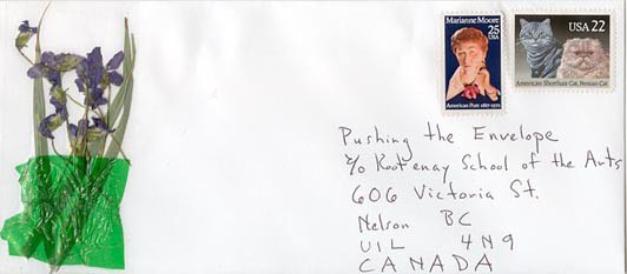 Marianne Moore
25
USA
American Poet 1887-1972
USA 22
American Shorthair Cat, Persian Cat
Pushing the Envelope
c/o Kootenay School of the Arts
606 Victoria St.
Nelson BC
U1L 4N9
CANADA